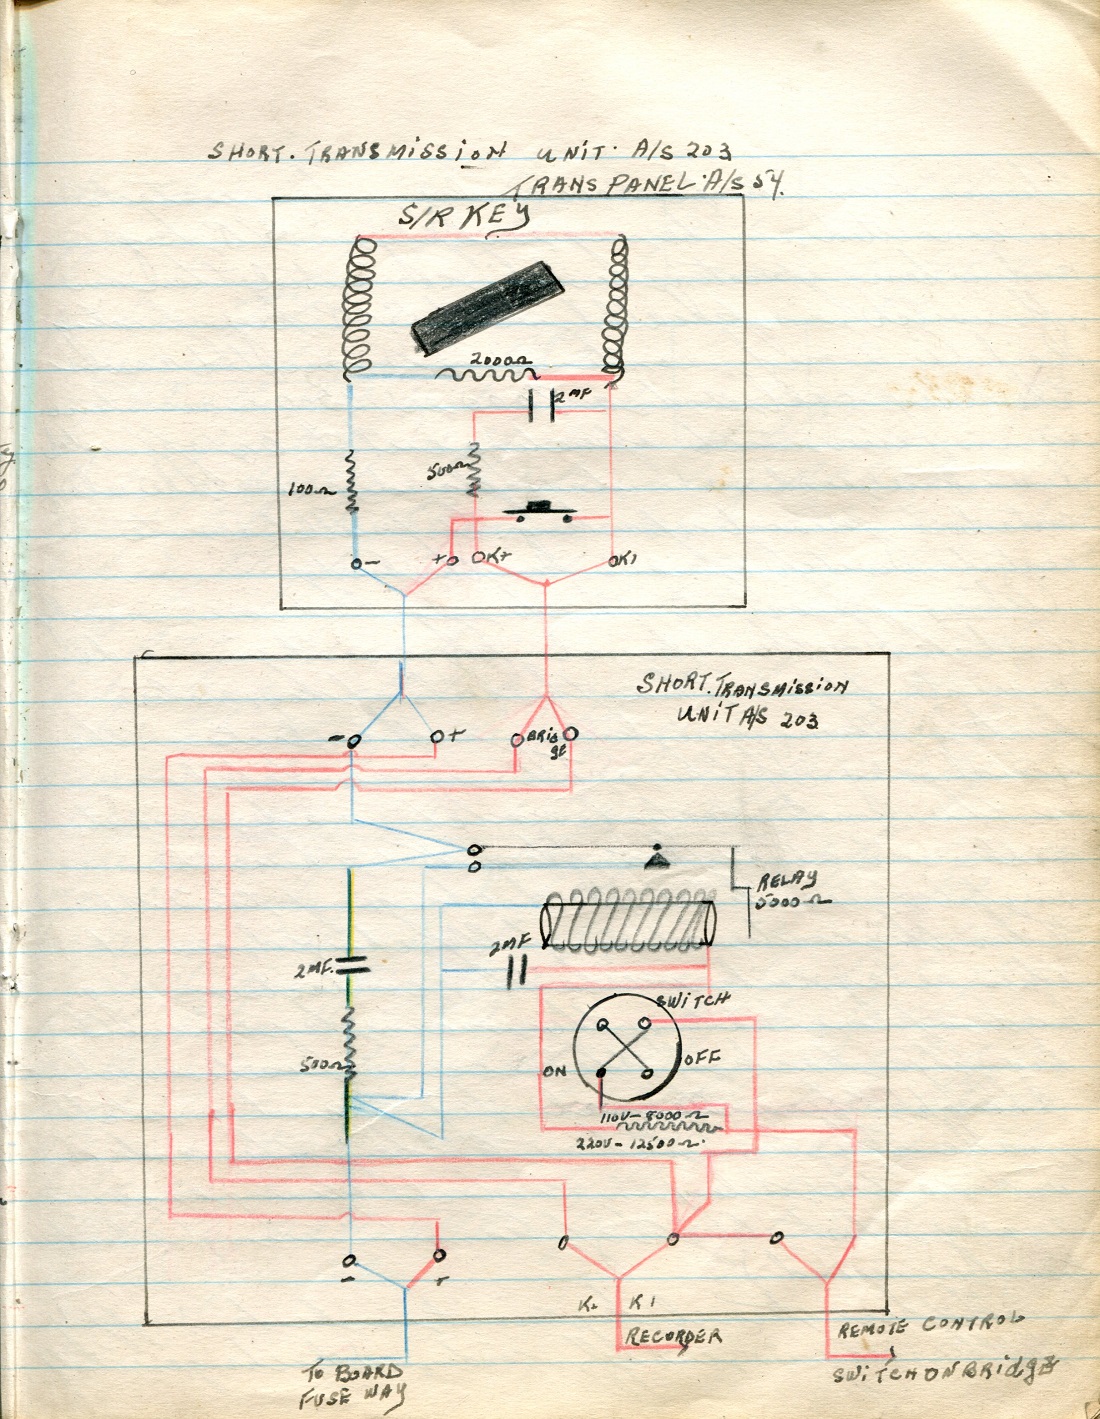 SHORT. TRANSMISSION UNIT. A/S 203
TRANS PANEL. A/S 54.
S/R KEY
2000Ω
2MF
500Ω
100Ω
-
+
K+
K1
SHORT. TRANSMISSION
UNIT A/S 203
-
+
BRID
GE
RELAY
5000Ω
2MF
2MF.
SWITCH
500Ω
ON
OFF
110V- 8000Ω
220V- 12500Ω.
-
+
K+
K1
RECORDER
REMOTE CONTROL
SWITCH ON BRIDGE
TO BOARD
FUSE WAY